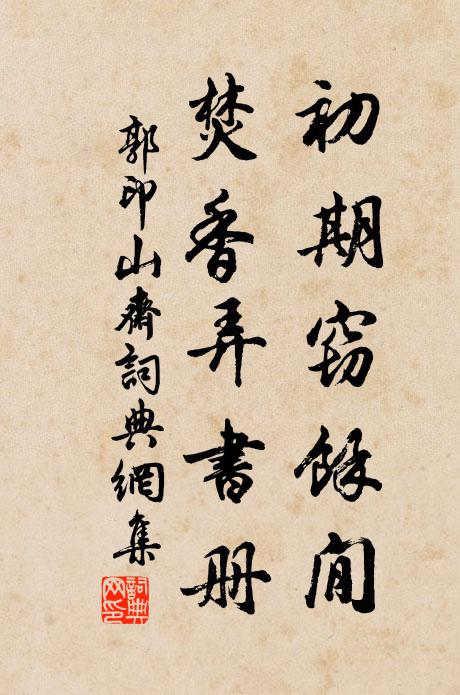 初期窃餘閒
焚香弄書册
郭印山齋詞典網集
詞典
网印